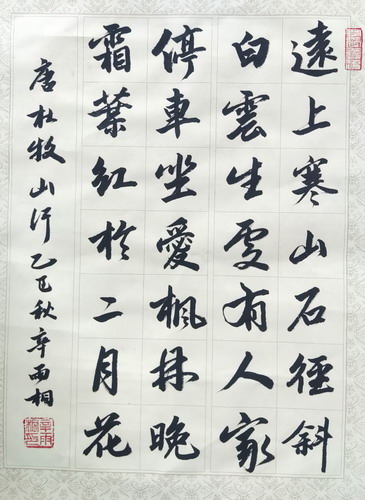 遠上寒山石徑斜
白雲生處有人家
停車坐愛楓林晚
霜葉紅於二月花
唐杜牧山行乙巳秋辛雨相